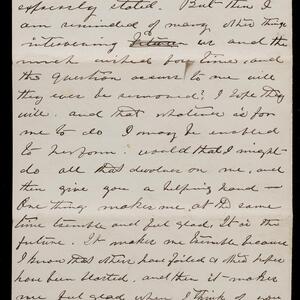 expressly stated. But then I
am reminded of many other things
intervening between us and the
much wished for time, and
the question occurs to one will
they ever be removed? I hope they
will. and that whatever is for
me to do I may be enabled
to perform. would that I might
do all that devolves on me, and
then give you a helping hand —
One thing makes me at the same
time tremble and feel glad. It is the
future. It makes me tremble because
I know that others have failed & their hopes
have been blasted, and then it makes
me feel glad when I think of you